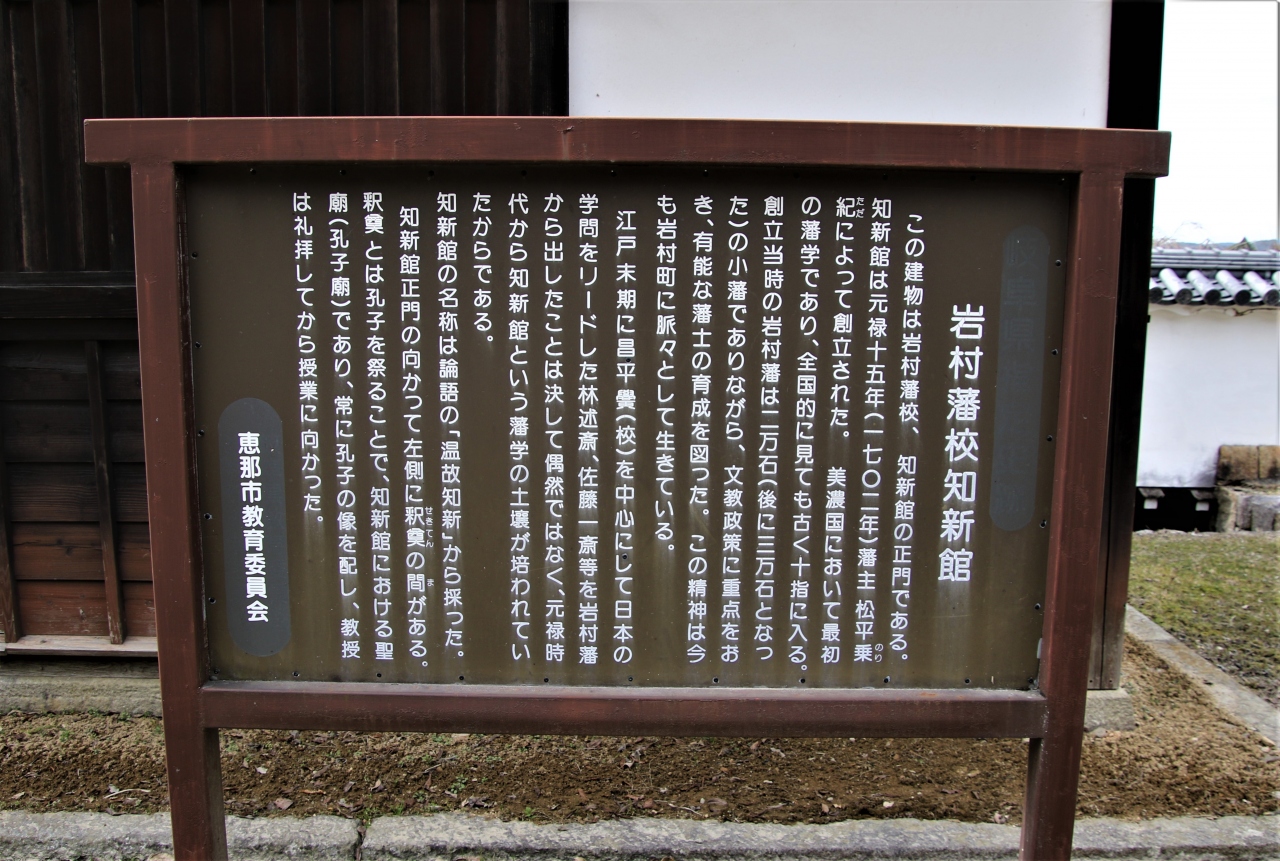 岩村藩校知新館
この建物は岩村藩校、知新館の正門である。
知新館は元禄十五年(一七〇二年)藩主 松平乗
のり
紀によって創立された。 美濃国において最初
ただ
の藩学であり、全国的に見ても古く十指に入る。
創立当時の岩村藩は二万石(後に三万石となっ
た)の小藩でありながら、文教政策に重点をお
き、有能な藩士の育成を図った。 この精神は今
も岩村町に脈々として生きている。
江戸末期に昌平黌(校)を中心にして日本の
学問をリードした林述斎、佐藤一斎等を岩村藩
から出したことは決して偶然ではなく、元禄時
代から知新館という藩学の土壌が培われてい
たからである。
知新館の名称は論語の「温故知新」から採った。
知新館正門の向かって左側に釈奠の間がある。
せきてん ま
釈奠とは孔子を祭ることで、知新館における聖
廟(孔子廟)であり、常に孔子の像を配し、教授
は礼拝してから授業に向かった。
恵那市教育委員会